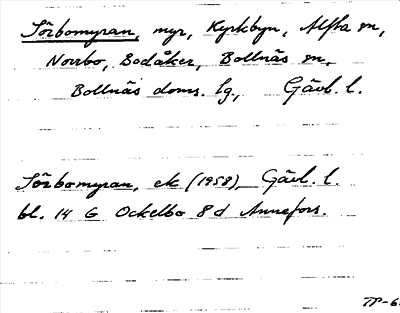 Sörbomyran, myr, Kyrkbyn, Alfta sn,
Norrbo, Bodåker, Bollnäs sn,
Bollnäs doms. lg., Gävl. l.
Sörbomyran, ek (1958), Gävl. l.
bl. 14 G Ockelbo 8 d Annefors.